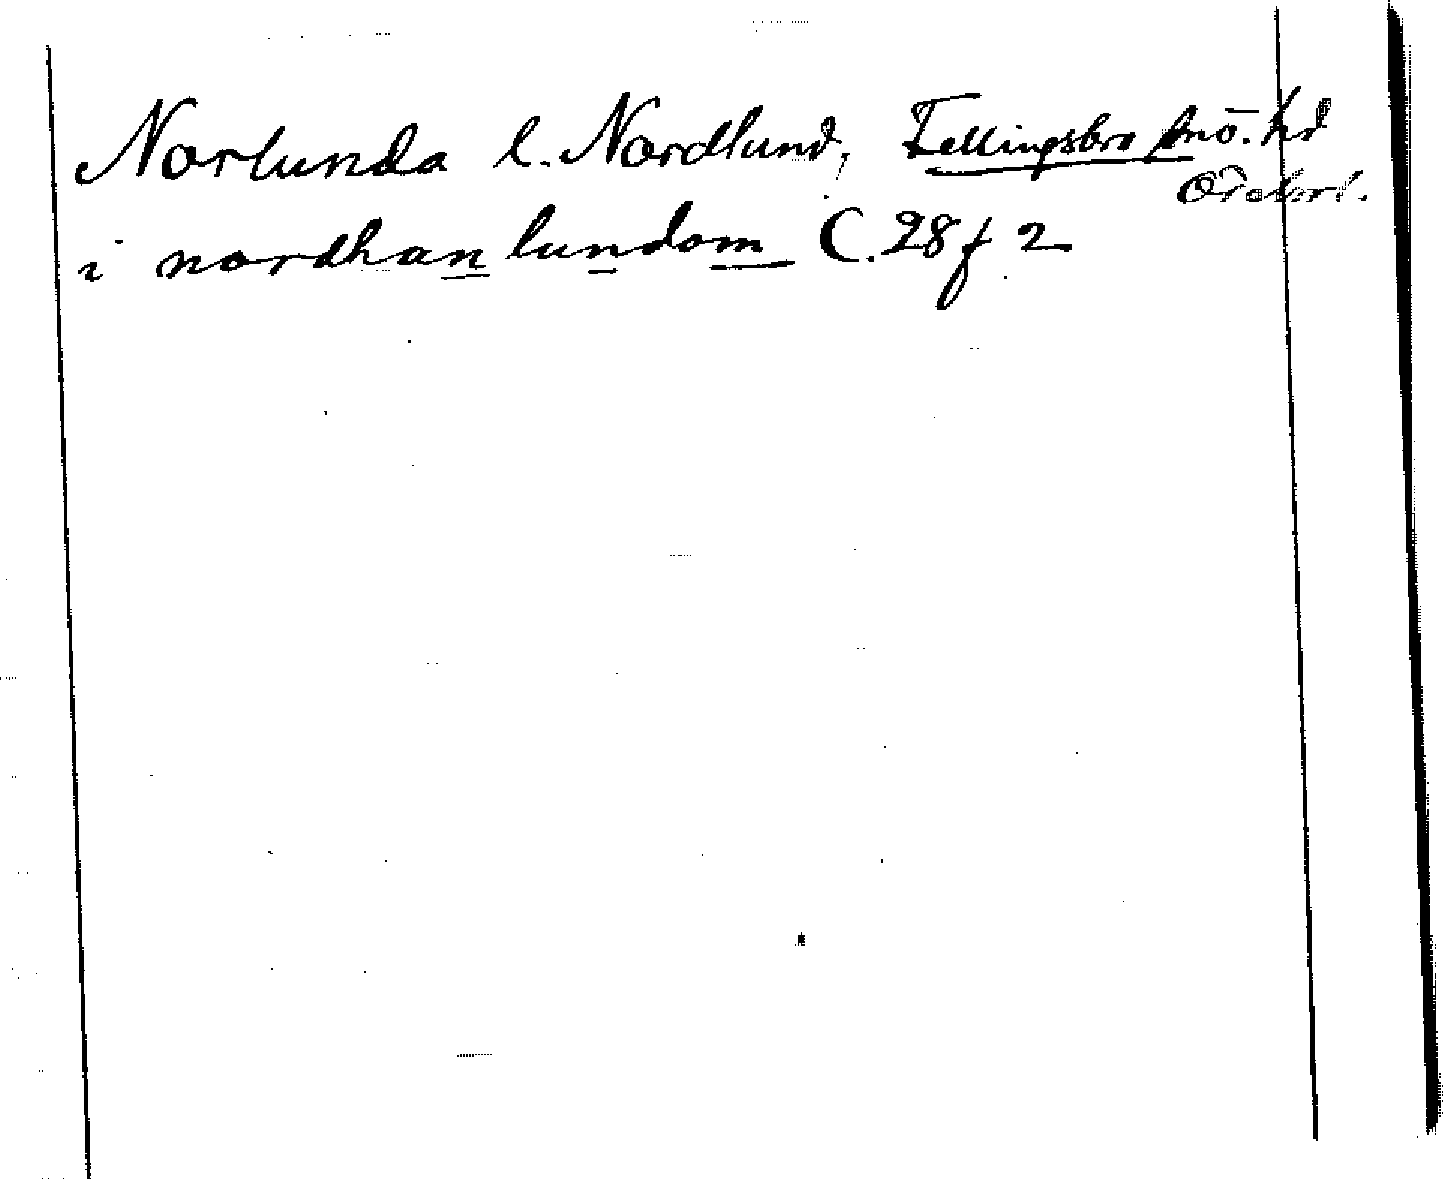 Norlunda l. Nordlund, Fellingsbro snö. hd
Örebr l.
i nordhan lundom C. 28 f 2